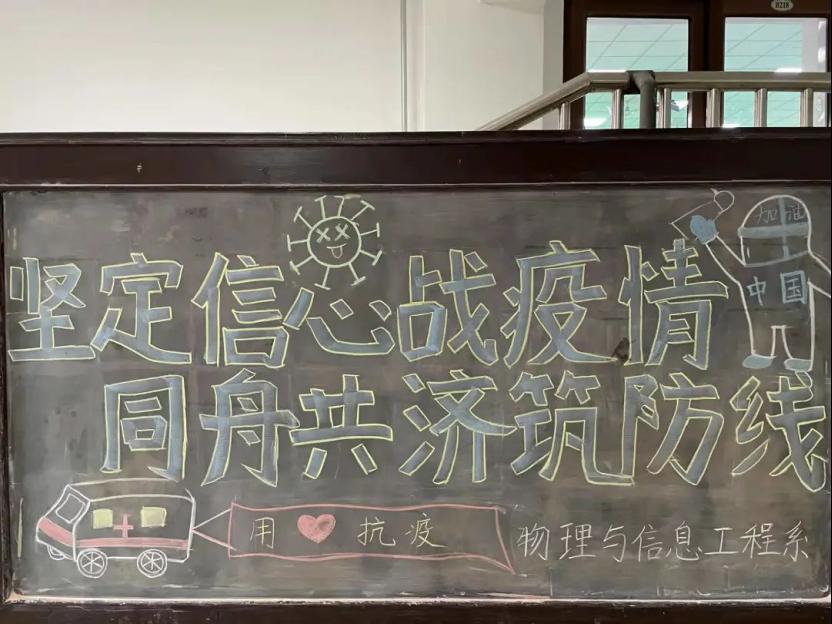 H218
加油
中国
坚定信心战疫情
同舟共济筑防线
用 ❤ 抗疫
物理与信息工程系